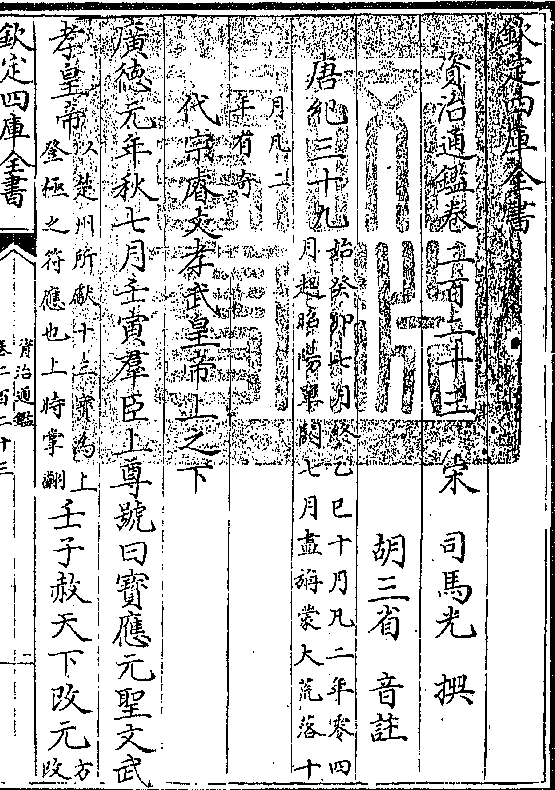 欽定四庫全書
資治通鑑卷二百二十三
宋 司馬光 撰
胡三省 音註
唐紀三十九 始癸卯七月終乙巳十月凡二年零四
月起昭陽單閼七月盡旃蒙大荒落十
月凡二
年有奇
代宗睿文孝武皇帝上之下
廣德元年秋七月壬寅羣臣上尊號曰寶應元聖文武
孝皇帝 以楚州所獻十三寳為上
登極之符應也上時掌翻 壬子赦天下改元 方
改
欽定四庫全書
資治通鑑
卷二百二十三